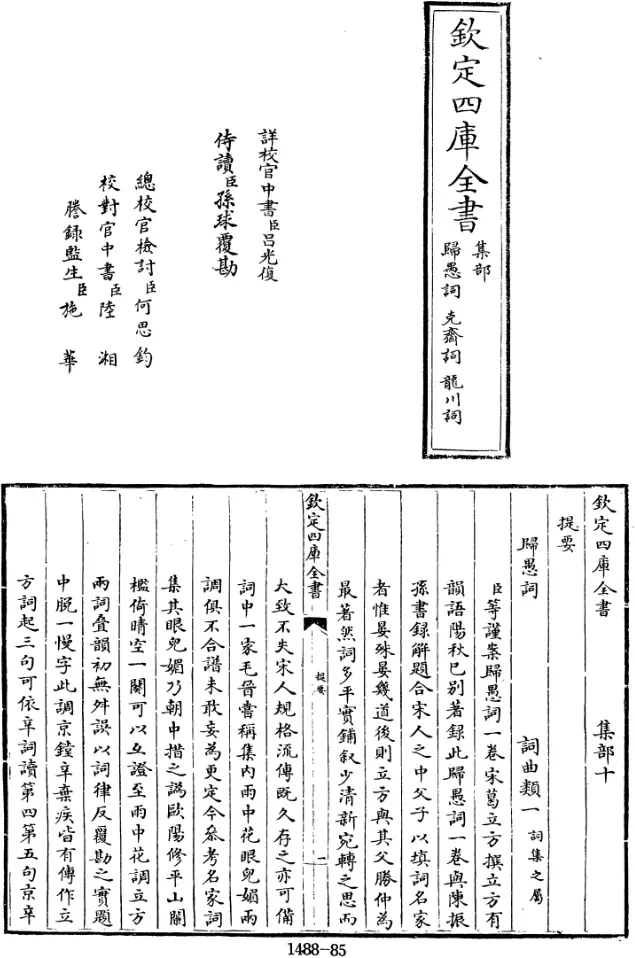 欽定四庫全書
集部
歸愚詞 克齋詞 龍川詞
詳校官中書臣呂光復
侍讀臣孫球覆勘
總校官檢討臣何思鈞
校對官中書臣陸湘
謄錄監生臣施華
欽定四庫全書 集部十
提要
歸愚詞 詞曲類一 詞集之屬
臣等謹案歸愚詞一卷宋葛立方撰立方有
韻語陽秋已别著録此歸愚詞一卷與陳振
孫書録解題合宋人之中父子以填詞名家
者惟晏殊晏幾道後則立方與其父勝仲為
最著然詞多平實鋪叙少清新宛轉之思而
欽定四庫全書 提要 一
大致不失宋人規格流傳既久存之亦可備
詞中一家毛晉嘗稱集内雨中花眼兒媚兩
調俱不合譜未敢妄為更定今叅考名家詞
集其眼兒媚乃朝中措之譌歐陽修平山闌
檻倚晴空一闋可以互證至雨中花調立方
兩詞疊韻初無舛誤以詞律反覆勘之實題
中脱一慢字此調京鏜辛棄疾皆有傳作立
方詞起三句可依辛詞讀第四第五句京辛
1488-85